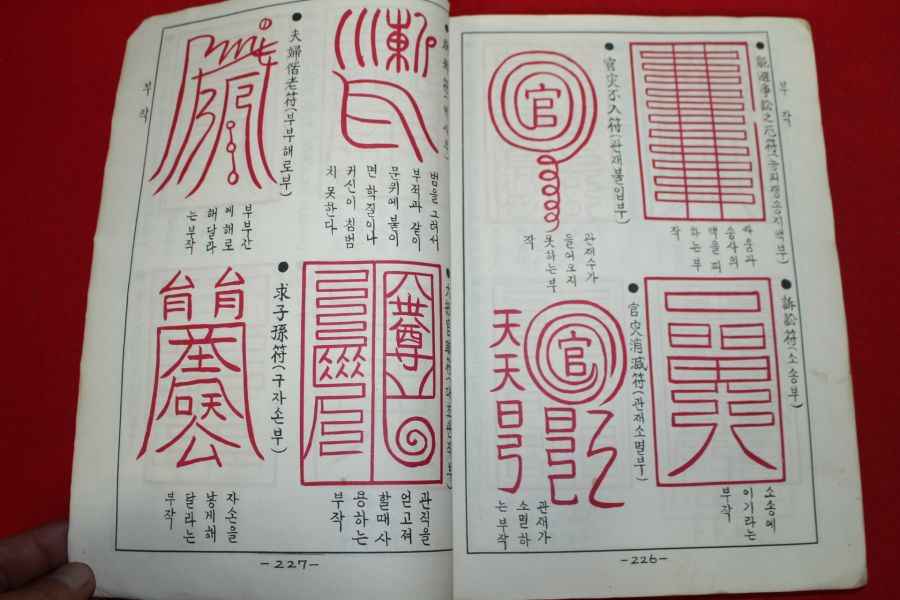 부작
●能避爭訟之厄符(능피쟁송지액부)
싸움과
송사의
액을 피
하는 부
작
●官灾不入符(관재불입부)
官
관재수가
들어오지
못하는 부
작
●訴訟符(소송부)
소송에
이기라는
부작
●官灾消滅符(관재소멸부)
官
天天
관재가
소멸하
는 부작
-226-
부작
범을 그려서
부적과 같이
문위에 붙이
면 학질이나
귀신이 침범
치 못한다
●夫婦偕老符(부부해로부)
부부간
에 해로
해달라
는 부작
官職符(대초관직부)
관직을
얻고져
할때 사
용하는
부작
●求子孫符(구자손부)
자손을
놓게해
달라는
부작
-227-